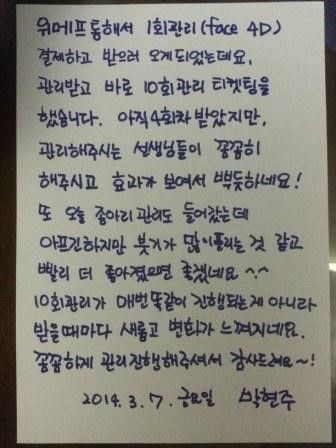 위메프통해서 1회관리(face 4D)
결제하고 받으러 오게되었는데요,
관리받고 바로 10회관리 티켓팅을
했습니다. 아직4회차 받았지만,
관리해주시는 선생님들이 꼼꼼히
해주시고 효과가 보여서 뿌듯하네요!
또 오늘 종아리관리도 들어갔는데
아프긴하지만 붓기가 많이풀리는 것 같고
빨리 더 좋아졌으면 좋겠네요 ^-^
10회관리가 매번똑같이 진행되는게 아니라
받을때마다 새롭고 변화가 느껴지네요.
꼼꼼하게 관리진행해주셔서 감사드려요~!
2014. 3. 7. 금요일 박현주